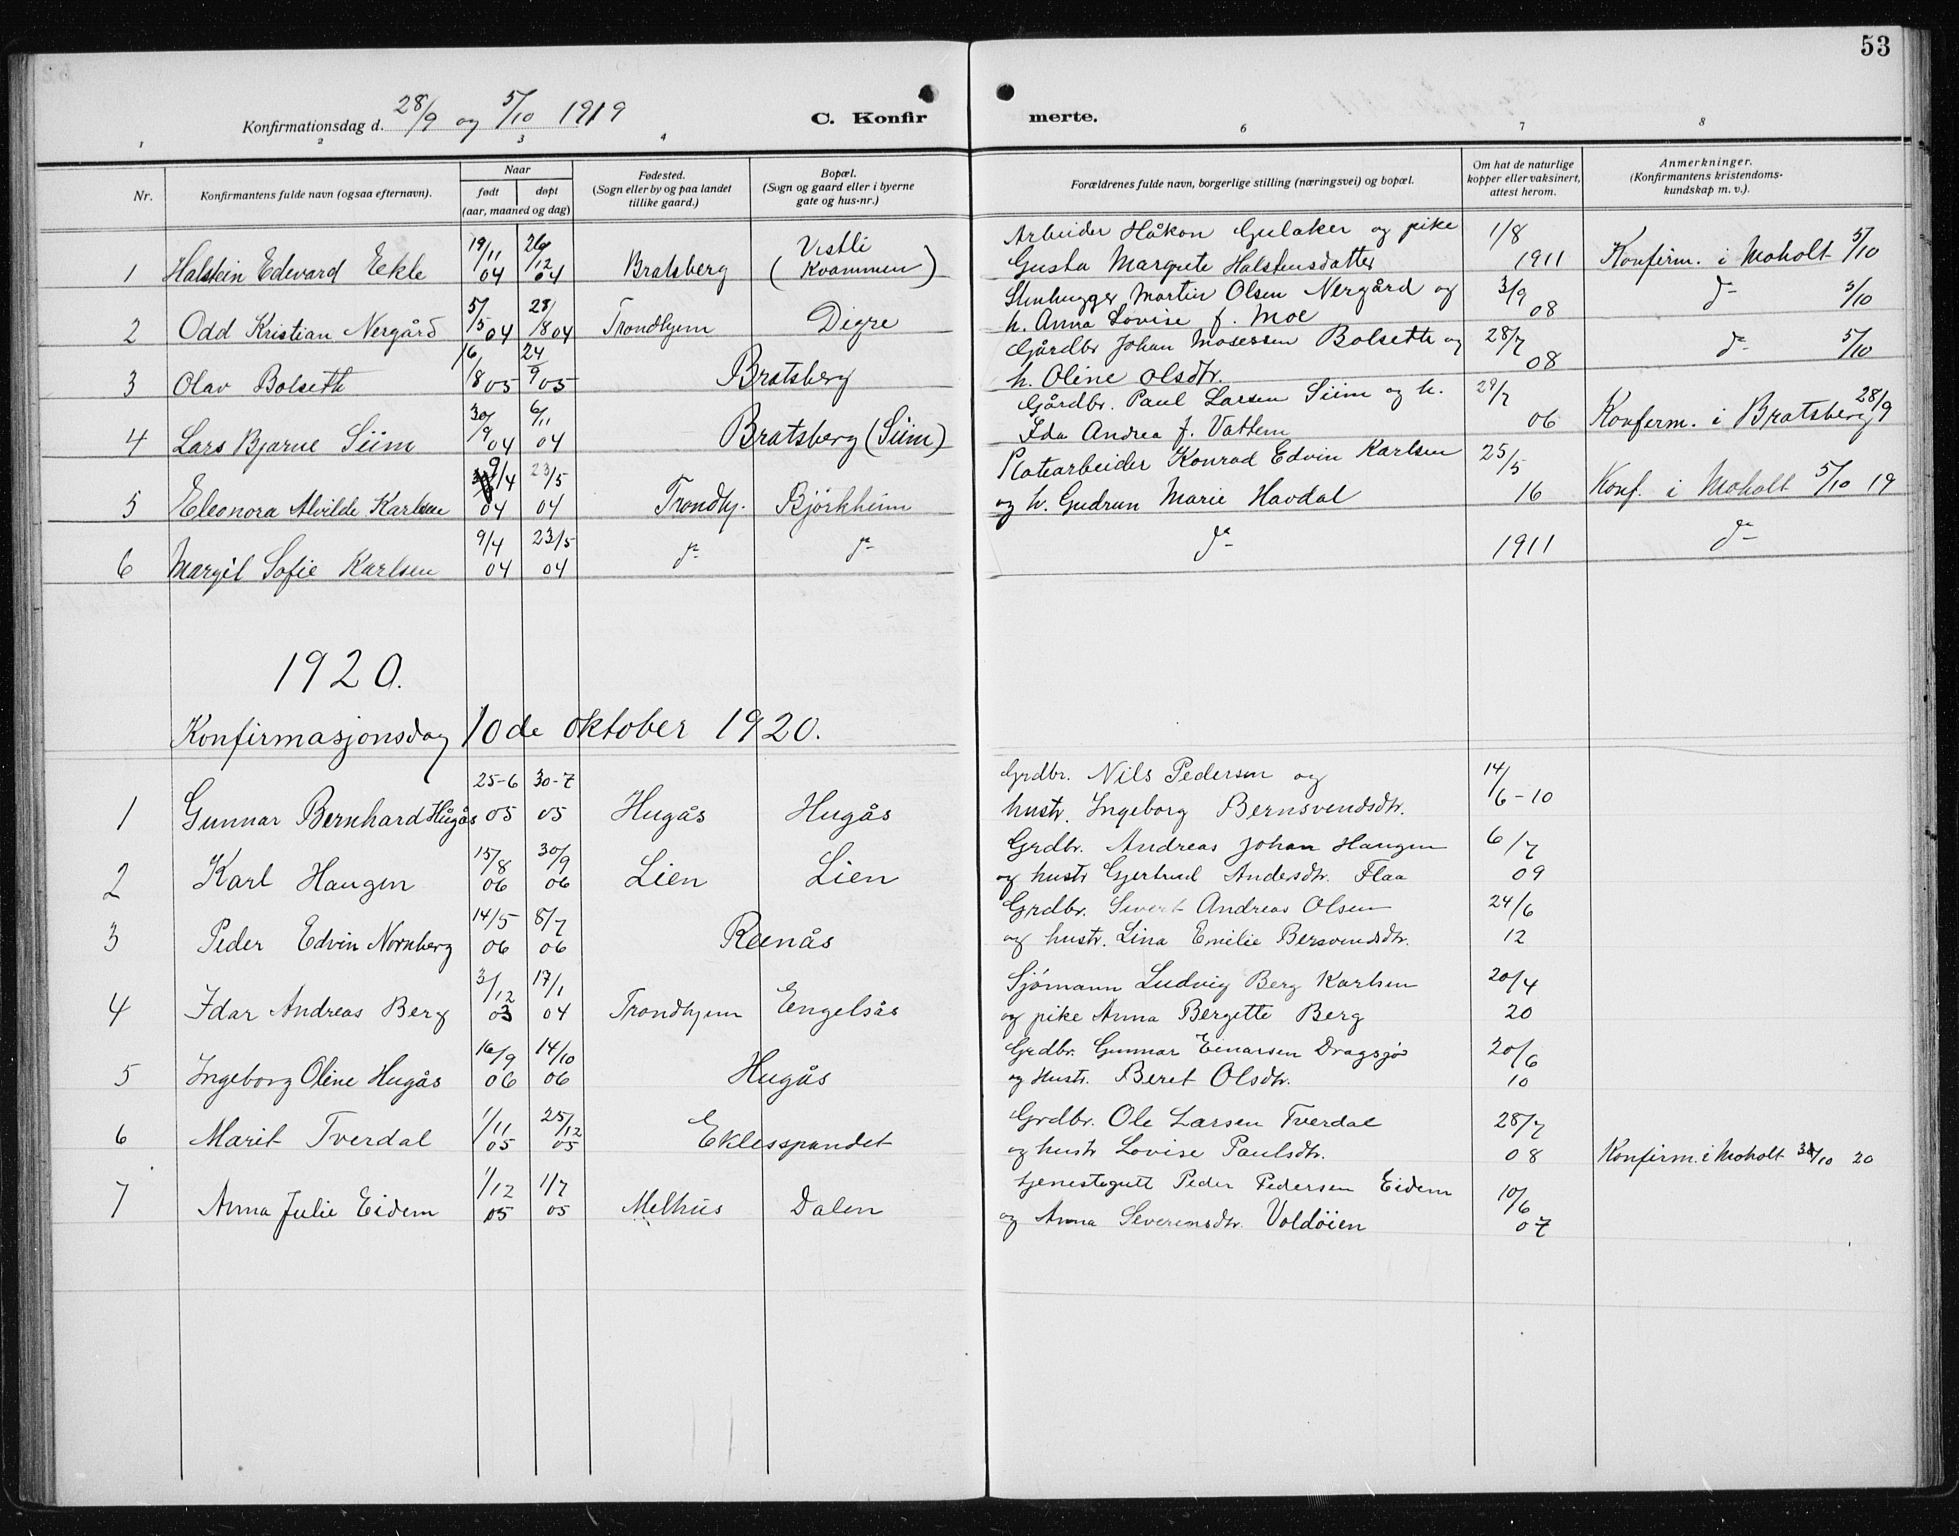 53
Konfirmationsdag d. 28/9 og 5/10 1919
C. Konfirmerte.
1 2 3 4 6 7 8
Nr.
Konfirmantens fulde navn (ogsaa efternavn).
Naar
født døpt
(aar, maaned og dag)
Fødested.
(Sogn eller by og paa landet
tillike gaard.)
Bopæl.
(Sogn og gaard eller i byerne
gate og hus-nr.)
Forældrenes fulde navn, borgerlige stilling (næringsvei) og bopæl.
Om hat de naturlige
kopper eller vaksinert,
attest herom.
Anmerkninger.
(Konfirmantens kristendoms-
kundskap m. v.).
1 Halstein Edevard Eekle 19/11 04 26/12 04 Bratsberg Vestli (Kvammen)
Arbeider Håkon Gulaker og pike
Gusta Margrete Halstensdatter 1/8 1911 Konfirm. i Moholt 5/10
2 Odd Kristian Nergård 5/5 04 28/8 04 Trondhjem Digre
Stenhugger Martin Olsen Nergård og
h. Anna Lovise f. Moe 3/9 08 do 5/10
3 Olav Bolseth 16/8 05 24/9 05 Bratsberg
Gårdbr Johan Mosessen Bolseth og
h. Oline Olsdtr. 28/7 08 do 5/10
4 Lars Bjarne Siim 30/9 04 6/11 04 Bratsberg (Siim)
Gårdbr. Paul Larsen Siim og h.
Ida Andrea f. Vattem 29/7 06 Konferm. i Bratsberg 28/9
5 Eleonora Alvilde Karlsen 9/4 04 23/5 04 Trondhj. Björkheim
Platearbeider Konrad Edvin Karlsen
og h. Gudrun Marie Havdal 25/5 16 Konf. i Moholt 5/10 19
6 Margit Sofie Karlsen 9/4 04 23/5 04 do do
do 1911 do
1920.
Konfirmasjonsdag 10de oktober 1920.
1 Gunnar Bernhard Hugås 25-6 05 30-7 05 Hugås Hugås
Grdbr. Nils Pedersen og
hustr. Ingeborg Bernsvendsdtr. 14/6-10
2 Karl Haugen 15/8 06 30/9 06 Lien Lien
Grdbr. Andreas Johan Haugen
og hustr Gjertrud Andersdtr. Flaa 6/7 09
3 Peder Edvin Nornberg 14/5 06 8/7 06 Reenås
Grdbr. Sivert Andreas Olsen
og hustr. Lina Emilie Bersvendsdtr. 24/6 12
4 Idar Andreas Berg 3/12 03 17/1 04 Trondhjem Engelsås
Sjømann Ludvig Berg Karlsen
og pike Anna Bergette Berg 20/4 20
5 Ingeborg Oline Hugås 16/9 06 14/10 06 Hugås
Grdbr. Gunnar Einarsen Dragsjø
og Hustr. Beret Olsdtr. 20/6 10
6 Marit Tverdal 1/11 05 25/12 05 Eklesspandet
Grdbr. Ole Larsen Tverdal
og hustr Lovise Paulsdtr. 28/7 08 Konfirm. i Moholt /10 20
7 Anna Julie Eidem 1/12 05 1/7 05 Melhus Dalen
tjenestegutt Peder Pedersen Eidem
og Anna Severinsdtr. Voldøien 10/6 07